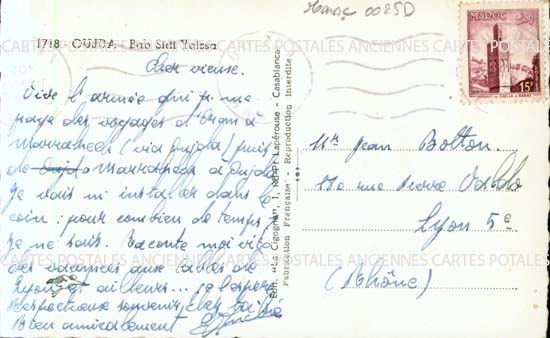 Maroc 0025D
1718 - OUJDA - Bab Sidi Yaïssa
Cher vieux.
Vive l'armée qui
paye des voyages d'Oran à
Marrakech (via Oujda) puis
de Marrakech à Oujda
Je vais m'installer dans le
coin : pour combien de temps,
je ne sais. Raconte moi vite
des vacances aux
Lyon et ailleurs...
Respectueux souvenirs chez toi
Bien amicalement
Édit. "La Cigogne", 1, Lapérouse - Casablanca
Fabrication Française - Reproduction Interdite
MAROC
15F
Mr Jean Bolton
110 rue Pierre
Lyon 5e
(Rhône)
CARTES POSTALES ANCIENNES CARTES POSTALES ANCIENNES